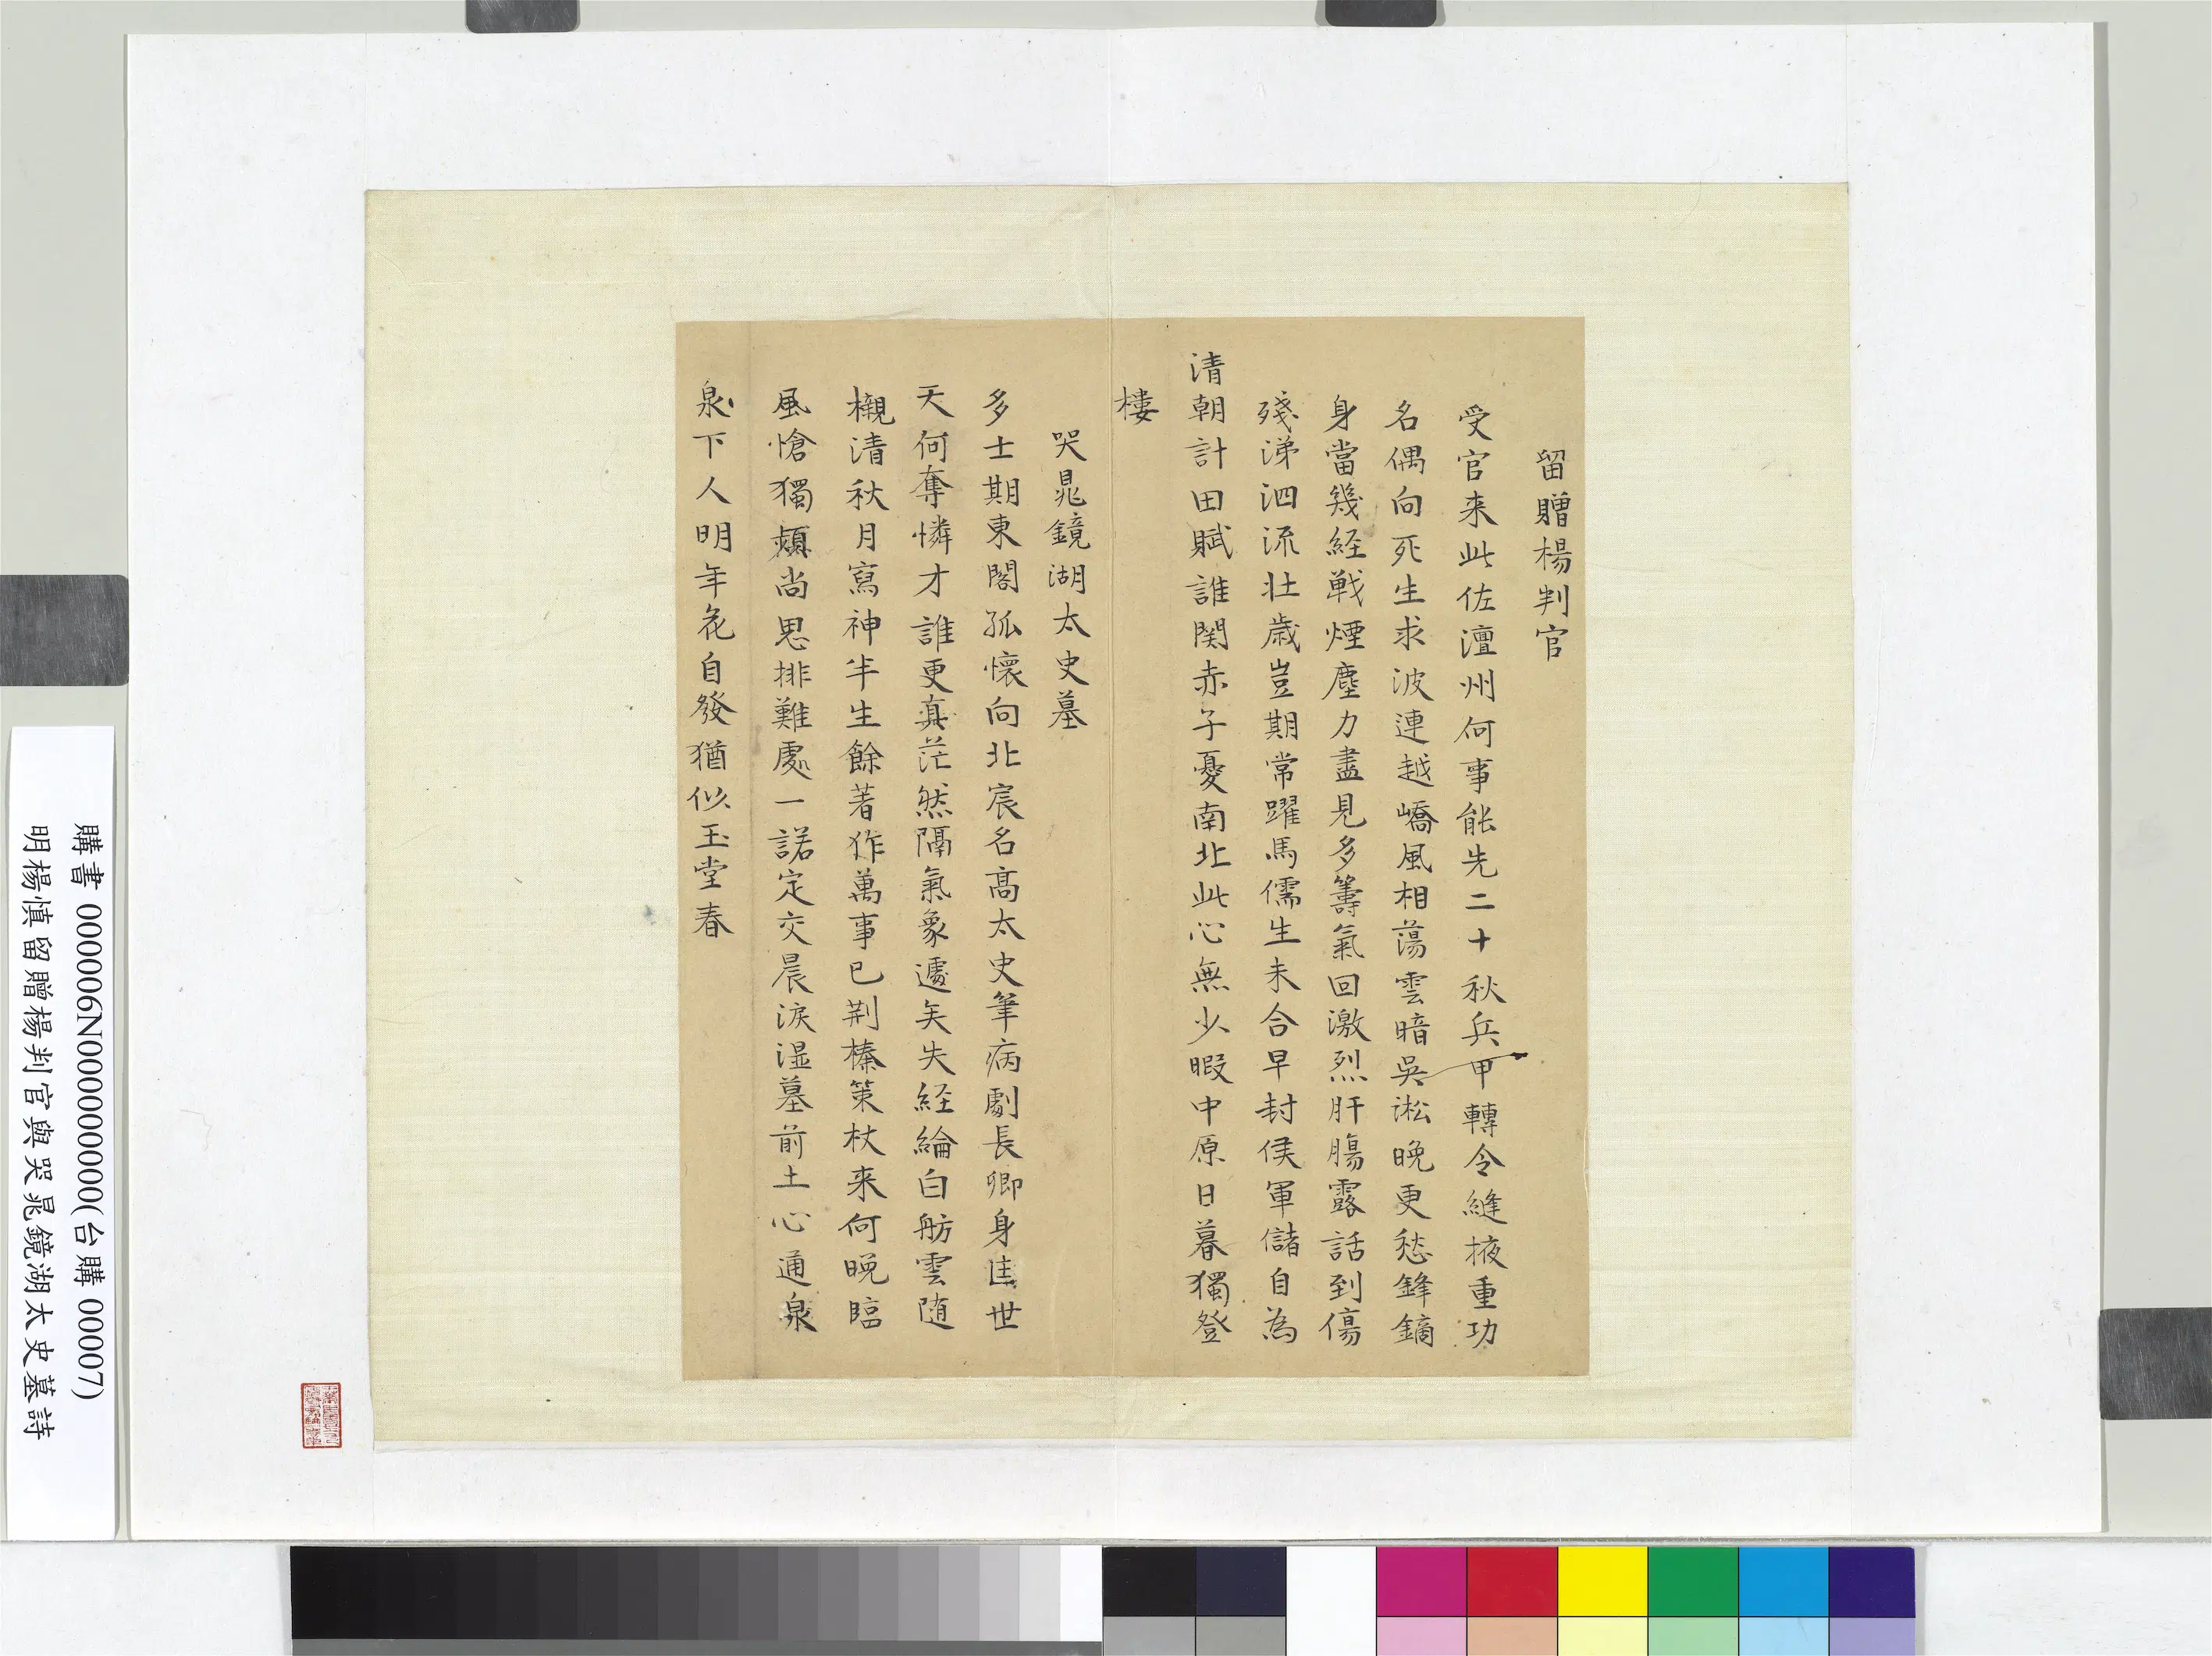 留贈楊判官
受官来此佐澶州何事能先二十秋兵甲轉令縫掖重功
名偶向死生求波連越嶠風相蕩雲暗吳淞晚更愁鋒鏑
身當幾経戦煙塵力盡見多籌氣回激烈肝腸露話到傷
殘涕泗流壯歳豈期常躍馬儒生未合早封侯軍儲自為
清朝計田賦誰関赤子憂南北此心無少暇中原日暮獨登
樓
哭晁鏡湖太史墓
多士期東閣孤懷向北宸名高太史筆病劇長卿身世
天何奪憐才誰更真茫然隔氣象遽矣失経綸白舫雲随
櫬清秋月寫神半生餘著作萬事已荆榛策杖来何晚臨
風愴獨頻尚思排難處一諾定交晨淚湿墓前土心通泉
泉下人明年花自發猶似玉堂春
購書 000006N000000000(台購 00007)
明楊慎留贈楊判官與哭晁鏡湖太史墓詩